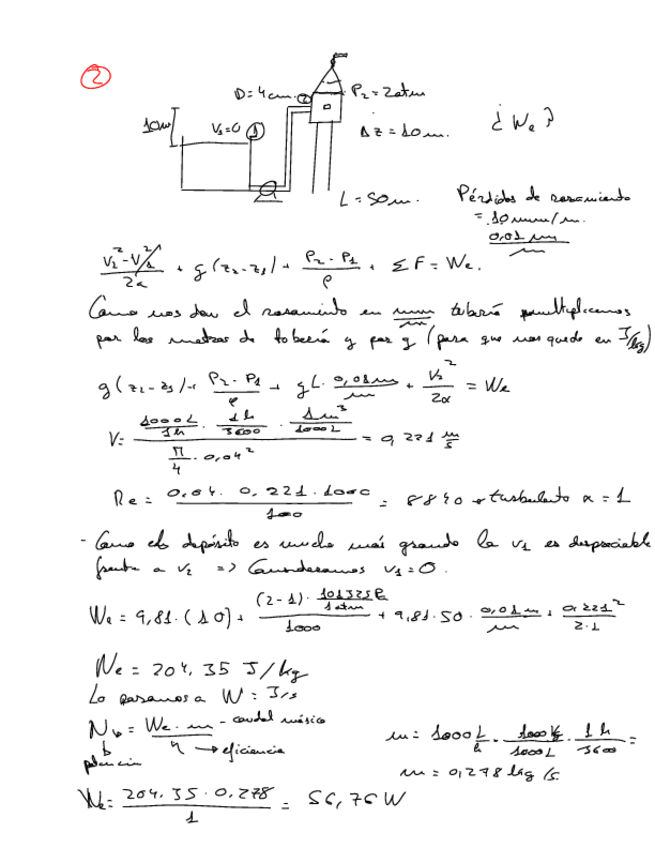 2
D = 4 cm. 2 P₂ = 2 atm
10m V₁ = 0 1 Δz = 10 m. ¿We?
L = 50 m. Pérdidas de rozamiento
= 10 mm/m.
0,01 m/m
(V₂² - V₁²)/2α + g(z₂ - z₁) + (P₂ - P₁)/ρ + ΣF = We.
Como nos dan el rozamiento en mm/m tubería multiplicamos
por los metros de tubería y por g (para que nos quede en J/kg)
g(z₂ - z₁) + (P₂ - P₁)/ρ + gL · 0,01m/m + V₂²/2α = We
V = (1000L/1h · 1h/3600 · 1m³/1000L)/(π/4 · 0,04²) = 0,221 m/s
Re = (0,04 · 0,221 · 1000)/ = 8840 → turbulento α = 1
- Como el depósito es mucho más grande la v₁ es despreciable
frente a v₂ => Consideramos v₁ = 0.
We = 9,81 · (10) + ((2-1) · 101325 Pa/1atm)/1000 + 9,81 · 50 · 0,01m/m + 0,221²/2·1
We = 204,35 J/kg
Lo pasamos a W = J/s
Nb = We · m/η - caudal másico
→ eficiencia
potencia
m = 1000 L/h · 1000 kg/1000L · 1h/3600 =
m = 0,278 kg/s.
= 204,35 · 0,278/1 = 56,76 W